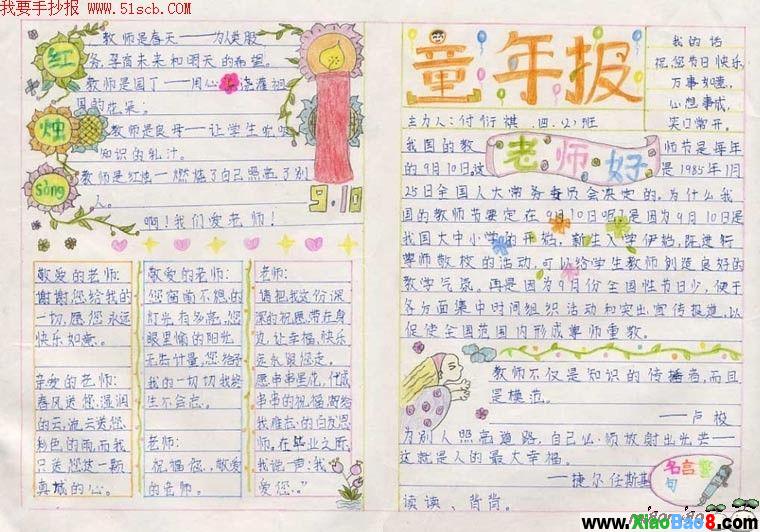 我要手抄报 www.51scb.com
红
烛
Song
教师是春天——为人类服
务,孕育未来和明天的希望。
教师是园丁——用心 浇灌祖
国的花朵。
教师是良母——让学生吮吸
知识的乳汁。
教师是红烛——燃烧了自己照亮了别
人。
啊!我们爱老师!
9.10
敬爱的老师:
谢谢您给我的
一切,愿您永远
快乐如意。
亲爱的老师:
春风送您湿润
的云,流云送您
彩色的雨,而我
只送您这一颗
真诚的心。
敬爱的老师:
您窗前不熄的
灯光有多亮,您
眼里愉的阳光
无法计量,您给予
我的一切我终
生不会忘。
老师:
祝福您,敬爱
的老师。
老师:
请把我这份深
深的祝愿带在身
边,让幸福、快乐
永永跟您走。
愿串串星花,化成
串串的祝福,寄给
我难忘的白发恩
师。在毕业之际
我说一声:“我
爱您”
童年报
主办人:付衍祺 四.(2)班
我的话
祝您节日快乐
万事如意,
心想事成,
笑口常开。
老师好
我国的教 师节是每年
的9月10日,这 是1985年1月
25日全国人大常务委员会决定的。为什么我
国的教师节要定在9月10日呢?是因为9月10日是
我国大中小学的开始,新生入学伊始,即进行
尊师敬校的活动,可以给学生教师创造良好的
教学气氛。再是因为9月份全国性节日少,便于
各方面集中时间组织活动和突出宣传报道,以
促使全国范围内形成尊师重教。
教师不仅是知识的传播者,而且
是模范。
——卢梭
为别人照亮道路,自己必须放射出光芒——
这就是人的最大幸福。
——捷尔任斯基
名言警
句
读读、背背。
www.XiaoBao8.com